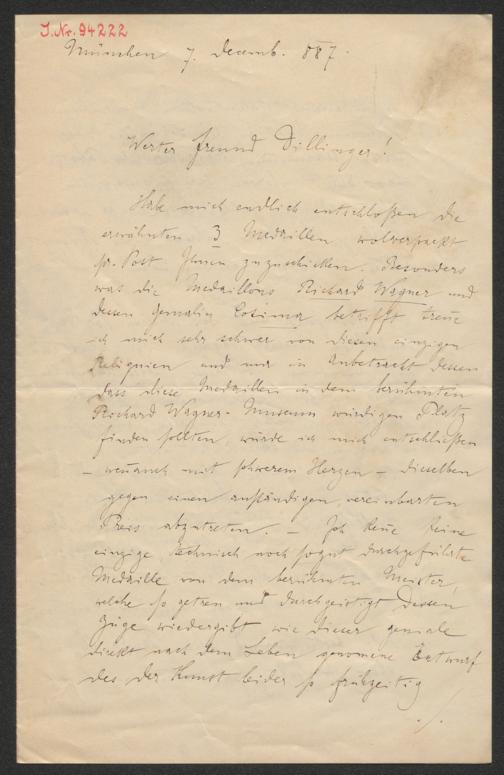 J. Nr. 94222
München 7. Decemb. 887.
Werter Freund Dillinger!
Habe mich endlich entschloßen die
erwähnten 3 Medaillen wolverpackt
pr. Post Ihnen zuzuschicken. Besonders
was die Medaillons Richard Wagner und
dessen Gemalin Cosima betrifft treñe
ich mich sehr schwer von diesen einzigen
Reliquien und nur in Anbetracht dessen
dass diese Medaillen in dem berühmten
Richard Wagner-Museum würdigen Platz
finden sollten, würde ich mich entschließen
– weñauch mit schwerem Herzen – dieselben
gegen einen anständigen, vereinbarten
Preis abzutreten. – Ich keñe keine
einzige technisch noch sogut durchgeführte
Medaille von dem berühmten Meister,
welche so getreu und durchgeistigt dessen
Züge wiedergibt wie dieser geniale
direkt nach dem Leben genomene Entwurf
des der Kunst leider so frühzeitig
./.